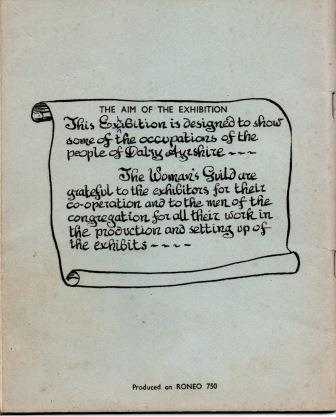 THE AIM OF THE EXHIBITION
This Exibition is designed to show
some of the occupations of the
people of Dalry Ayrshire ---
The Woman's Guild are
grateful to the exhibitors for their
co-operation and to the men of the
congregation for all their work in
the production and setting up of
the exhibits ----
Produced on RONEO 750